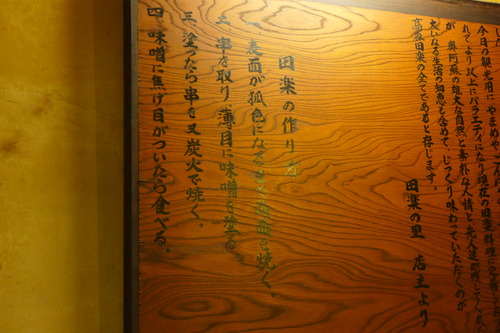 今日の観光用に
れてより以上にバラエティになり現在の田楽料理に
が 奥阿蘇の雄大な自然と素朴な人情と先人達が残してくれた
大いなる生活の知恵も含めて、じっくり味わっていただくのが
高森田楽の全てであると存じます。
田楽の里 店主より
田楽の作り方
一、表面が狐色になるまで 焼く。
二、串を取り、薄目に味噌を塗る。
三、塗ったら串を又炭火で焼く。
四、味噌に焦げ目がついたら食べる。